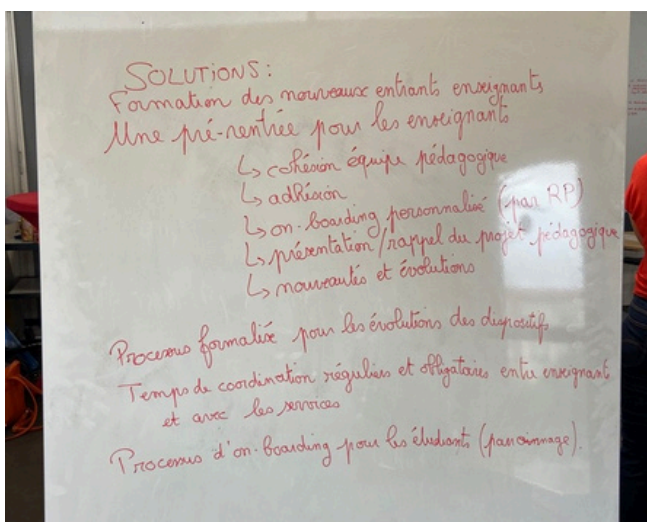 SOLUTIONS:
Formation des nouveaux entrants enseignants
Une pré-rentrée pour les enseignants
↳ cohésion équipe pédagogique
↳ adhésion
↳ on-boarding personnalisé (par RP)
↳ présentation/rappel du projet pédagogique
↳ nouveautés et évolutions
Processus formalisé pour les évolutions des dispositifs
Temps de coordination réguliers et obligatoires entre enseignant
et avec les services
Processus d'on-boarding pour les étudiants (parrainage).